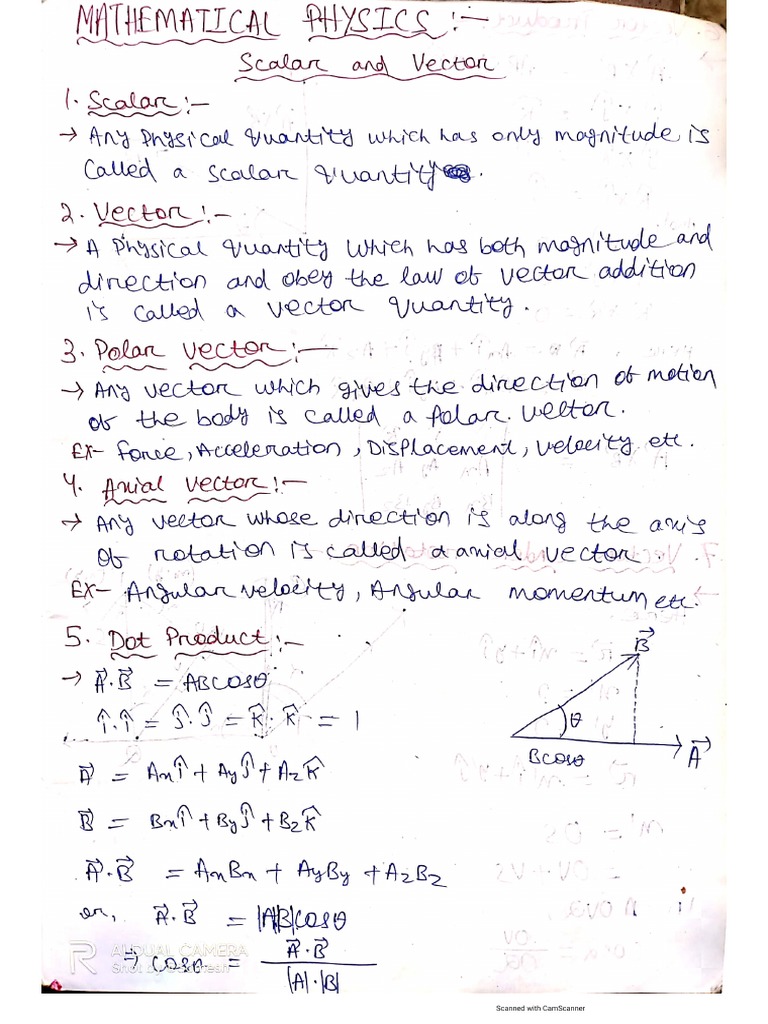 MATHEMATICAL PHYSICS :-
Scalar and Vector
1. Scalar :-
→ Any physical quantity which has only magnitude is
called a scalar quantity.
2. Vector :-
→ A physical quantity which has both magnitude and
direction and obey the law of vector addition
is called a vector quantity.
3. Polar vector :-
→ Any vector which gives the direction of motion
of the body is called a polar vector.
Ex- force, Acceleration, Displacement, velocity etc.
4. Axial vector :-
→ Any vector whose direction is along the axis
of rotation is called a anial vector.
Ex- Angular velocity, Angular momentum etc.
5. Dot Product :-
→ A⃗·B⃗ = ABcosθ
î·î = ĵ·ĵ = k̂·k̂ = 1
B⃗
θ
Bcosθ
A⃗
A⃗ = Axî + Ayĵ + Azk̂
B⃗ = Bxî + Byĵ + Bzk̂
A⃗·B⃗ = AxBx + AyBy + AzBz
or, A⃗·B⃗ = |A||B|cosθ
⇒ cosθ = A⃗·B⃗ / |A|·|B|
AI DUAL CAMERA
Shot by
Scanned with CamScanner